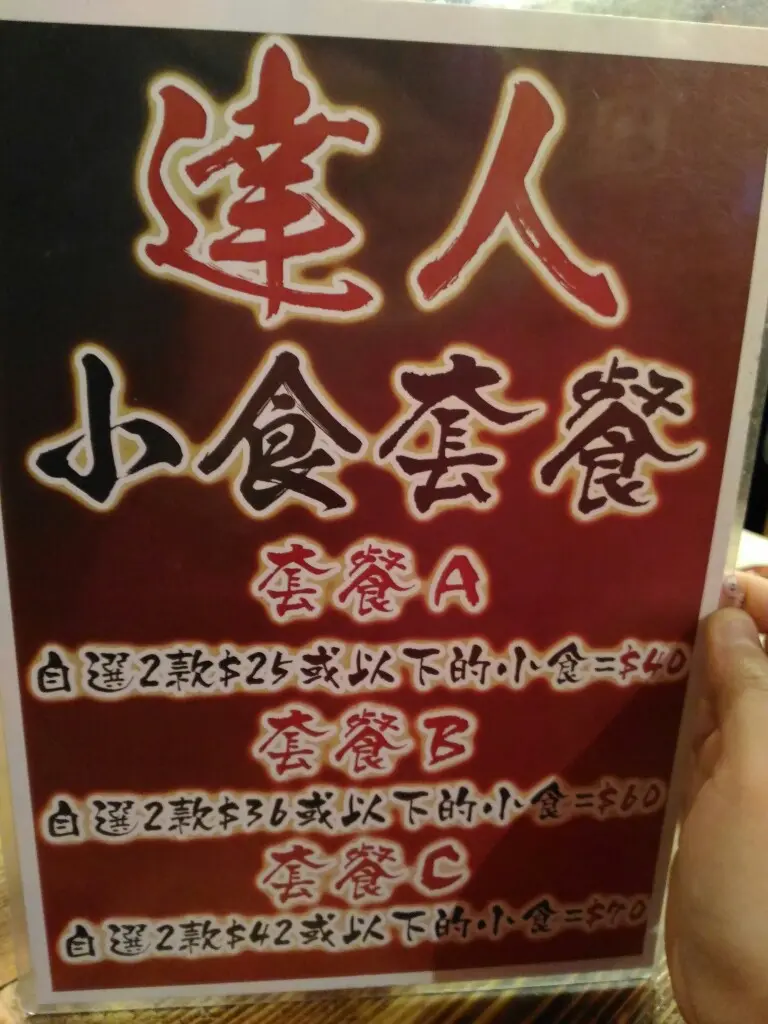 達人
小食套餐
套餐A
自選2款$25或以下的小食=$40
套餐B
自選2款$36或以下的小食=$60
套餐C
自選2款$42或以下的小食=$70